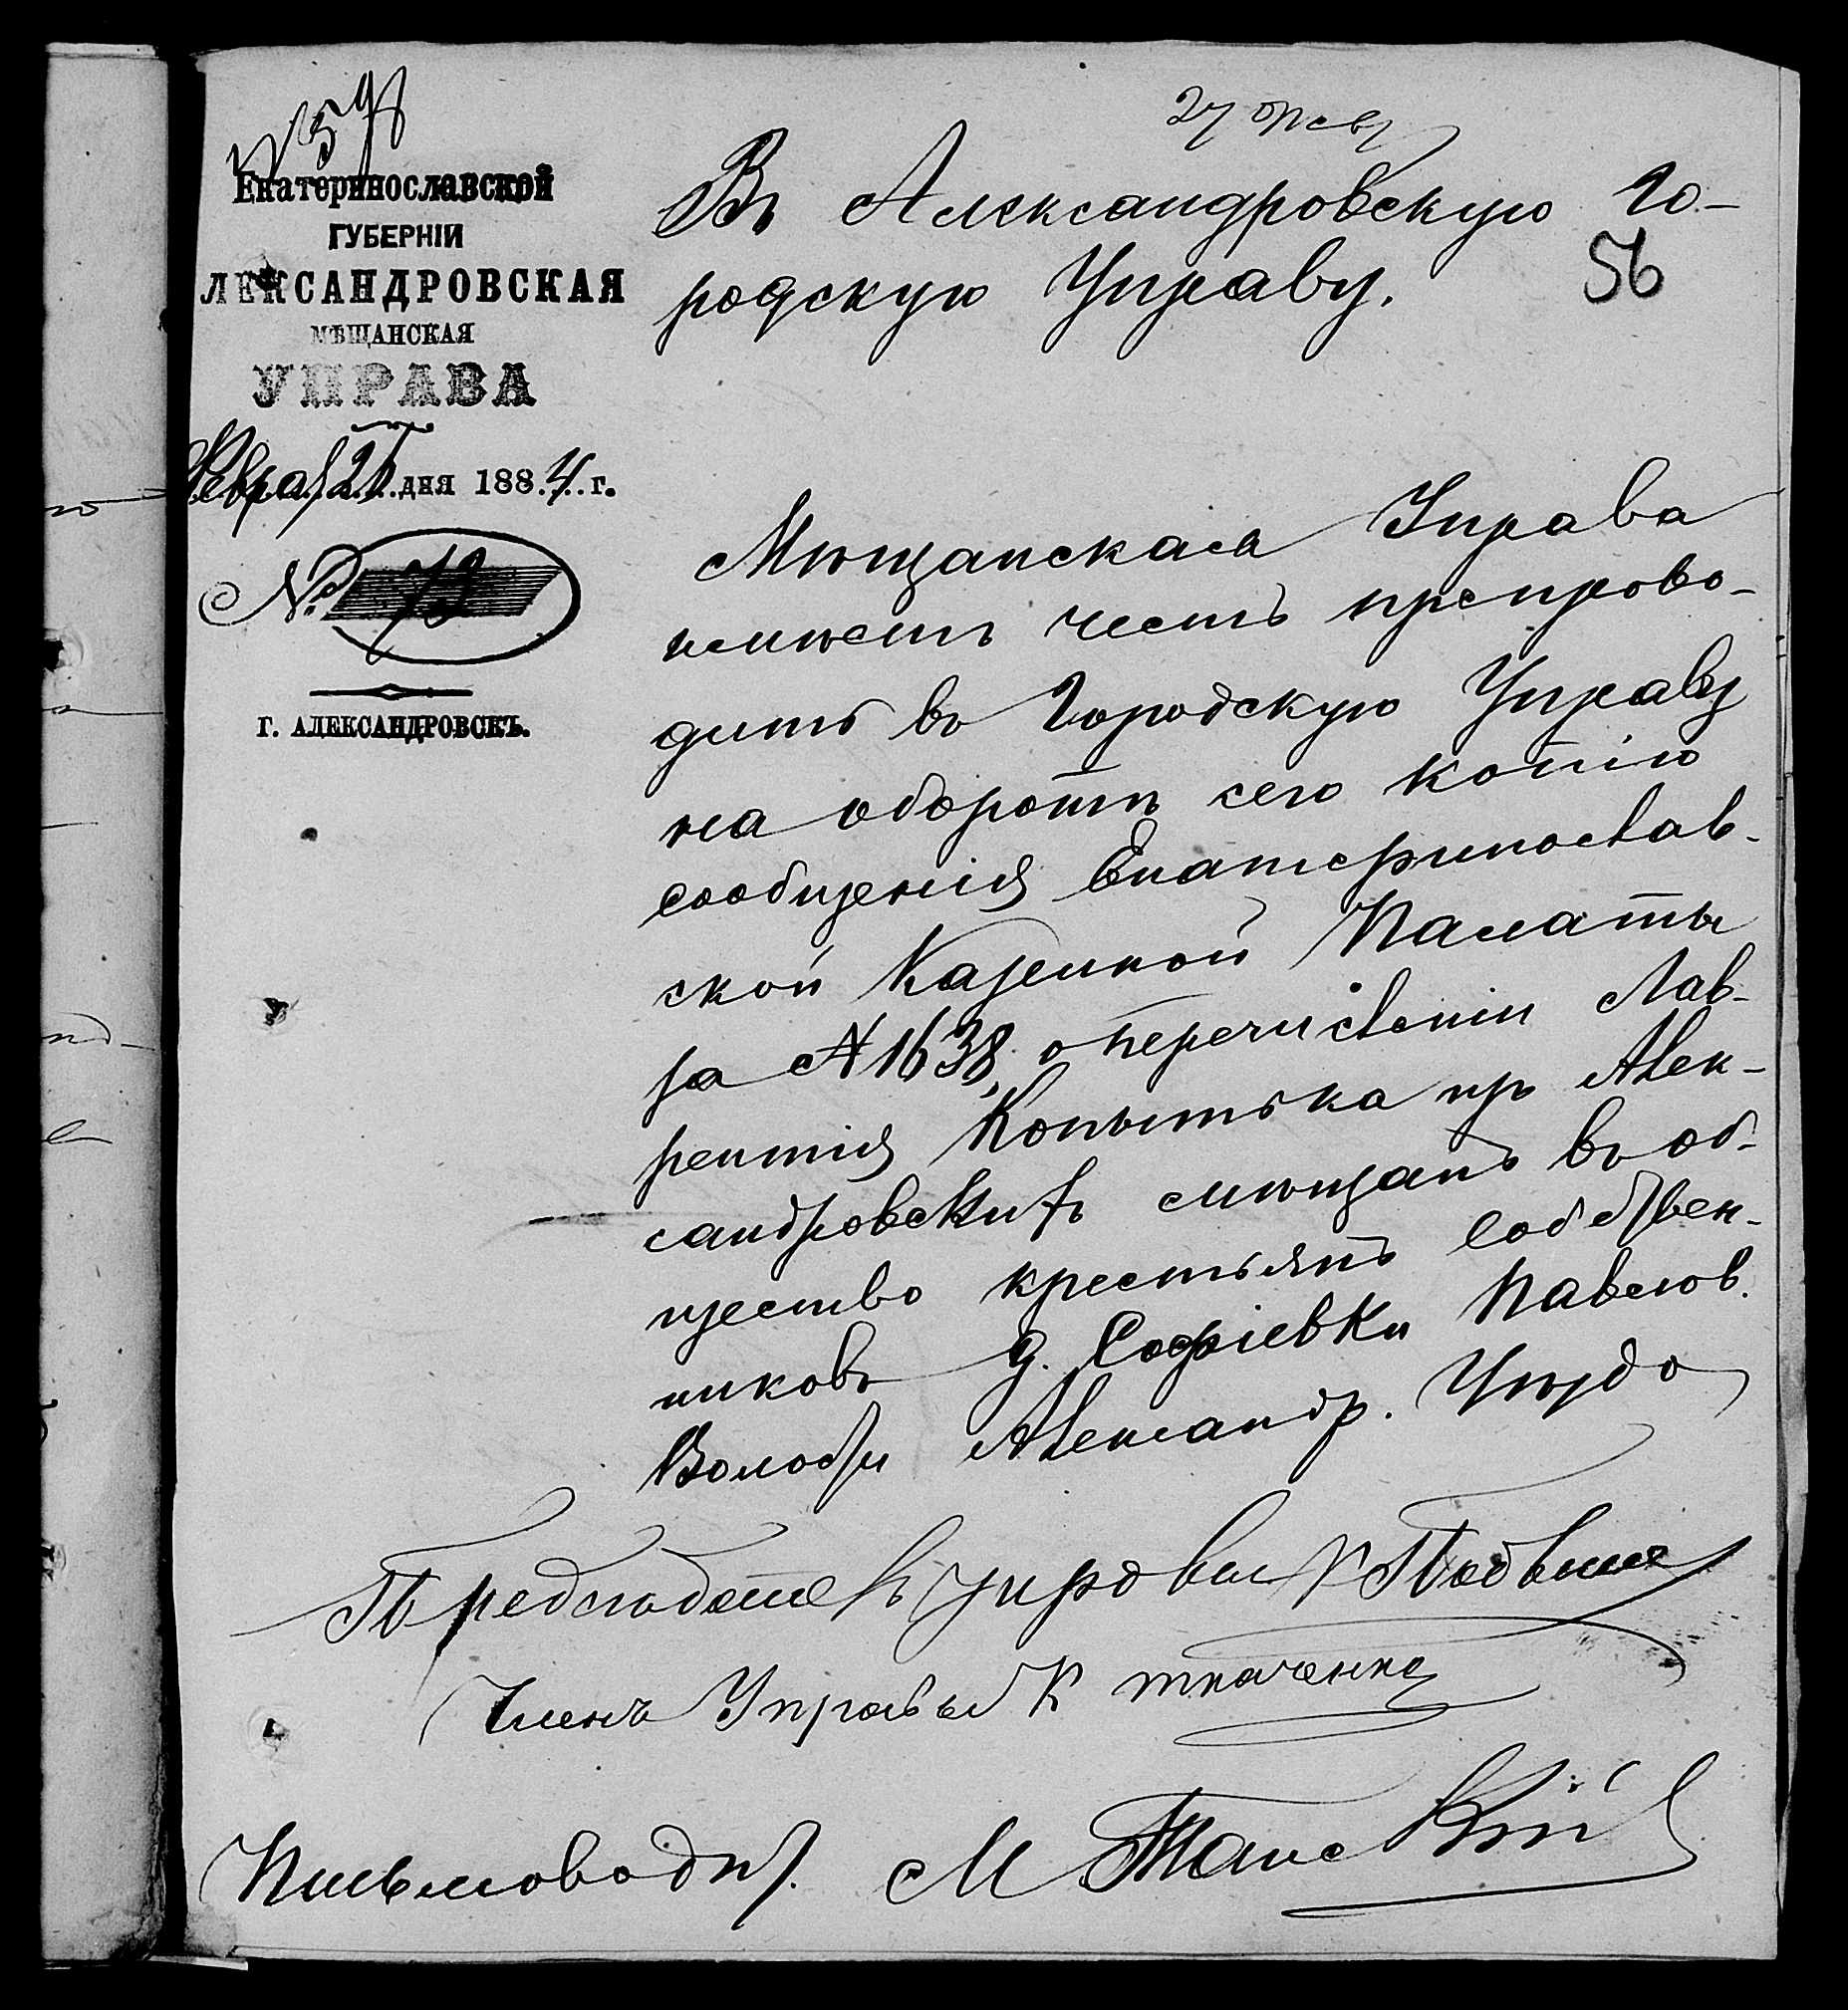 27 Февр
Екатеринославской
ГУБЕРНІИ
ЛЕКСАНДРОВСКАЯ
МѢЩАНСКАЯ
УПРАВА
Феврал дня 1884 г.
№ 73
Г. АЛЕКСАНДРОВСКЪ.
Въ Александровскую Го-
родскую Управу.
56
Мѣщанская Управа
имѣетъ честь препрово-
дить въ Городскую Управу
на оборотѣ сего копію
сообщенія Екатеринослав-
ской Казенной Палаты
за № 1638, о перечисленіи Лав-
рентія Копытька изъ Алек-
сандровскихъ мѣщанъ въ об-
щество крестьянъ собствен-
никовъ д. Софіевки Павлов.
Волости Александр. Уѣзда
Предсѣдатель управы
Членъ Управы К Ткаченко
Письмоводит. М